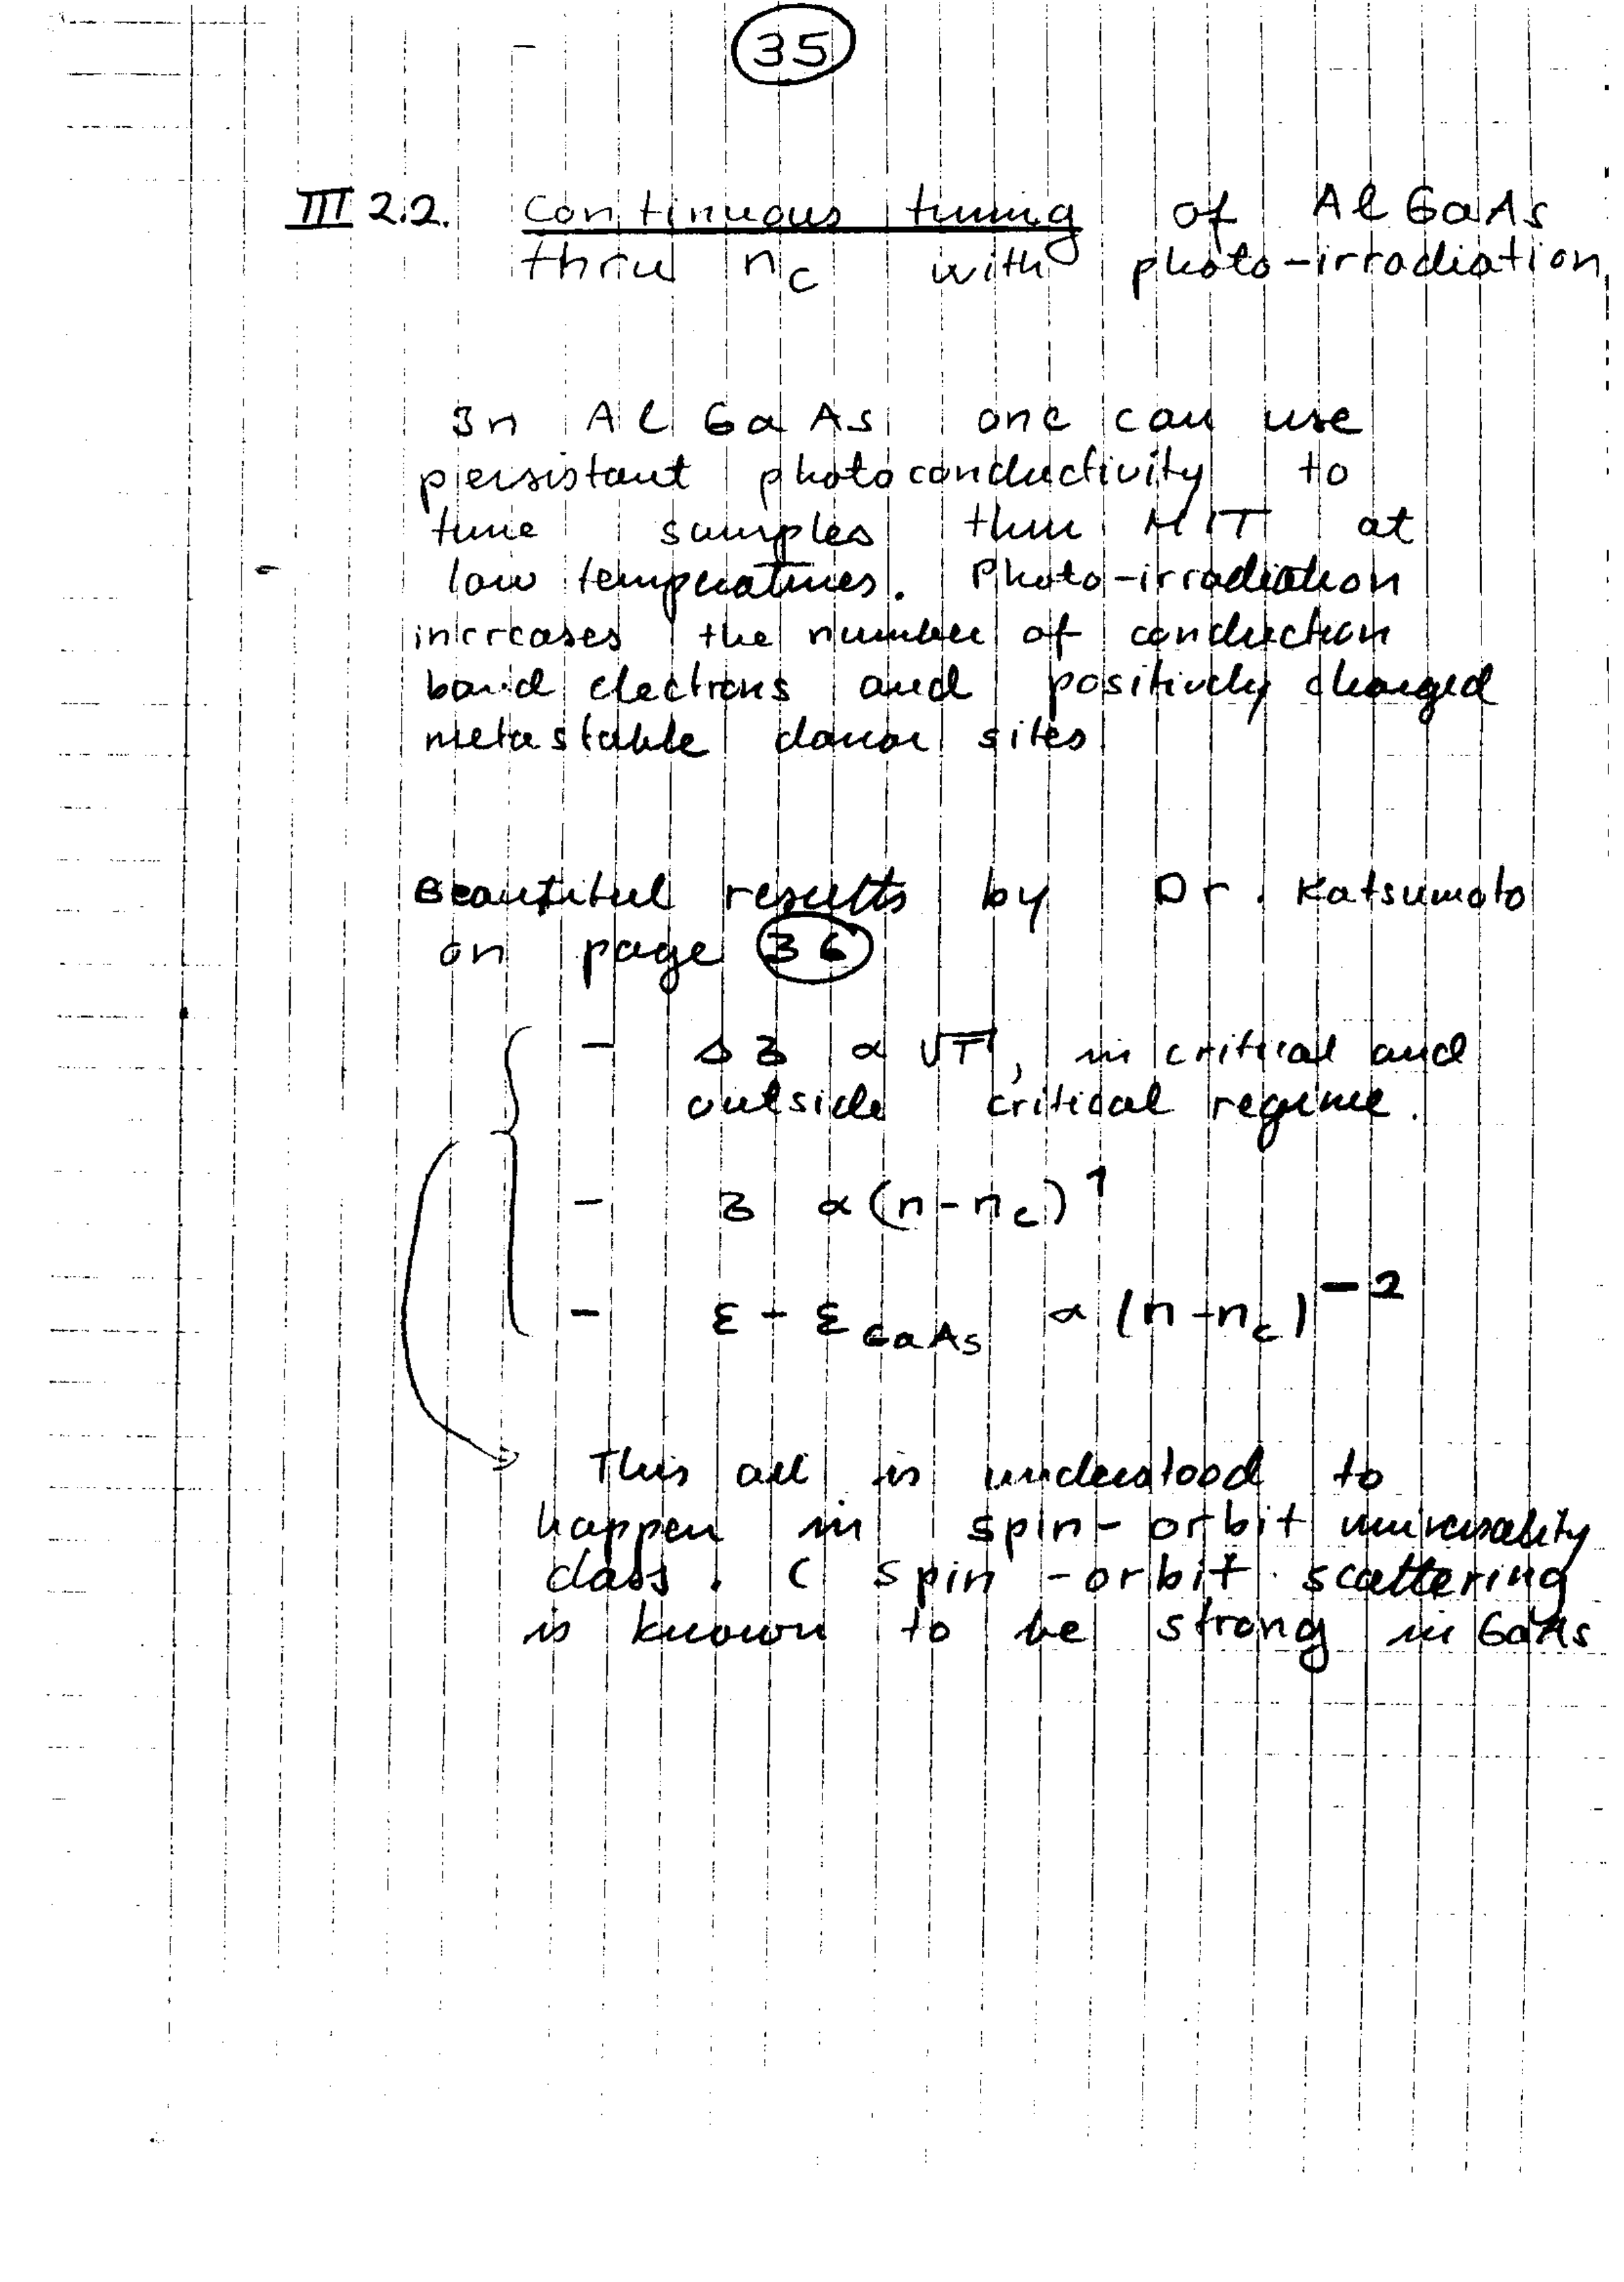 35
III 2.2. Continuous tuning of AlGaAs
thru n_c with photo-irradiation
In AlGaAs one can use
persistant photoconductivity to
tune samples thru MIT at
low temperatures. Photo-irradiation
increases the number of conduction
band electrons and positively charged
metastable donor sites
Beautiful results by Dr. Katsumoto
on page 36
- Δσ ∝ √T, in critical and
outside critical regime.
- σ ∝ (n-n_c)^1
- ε - ε_GaAs ∝ (n-n_c)^-2
This all is understood to
happen in spin-orbit universality
class. ( spin-orbit scattering
is known to be strong in GaAs